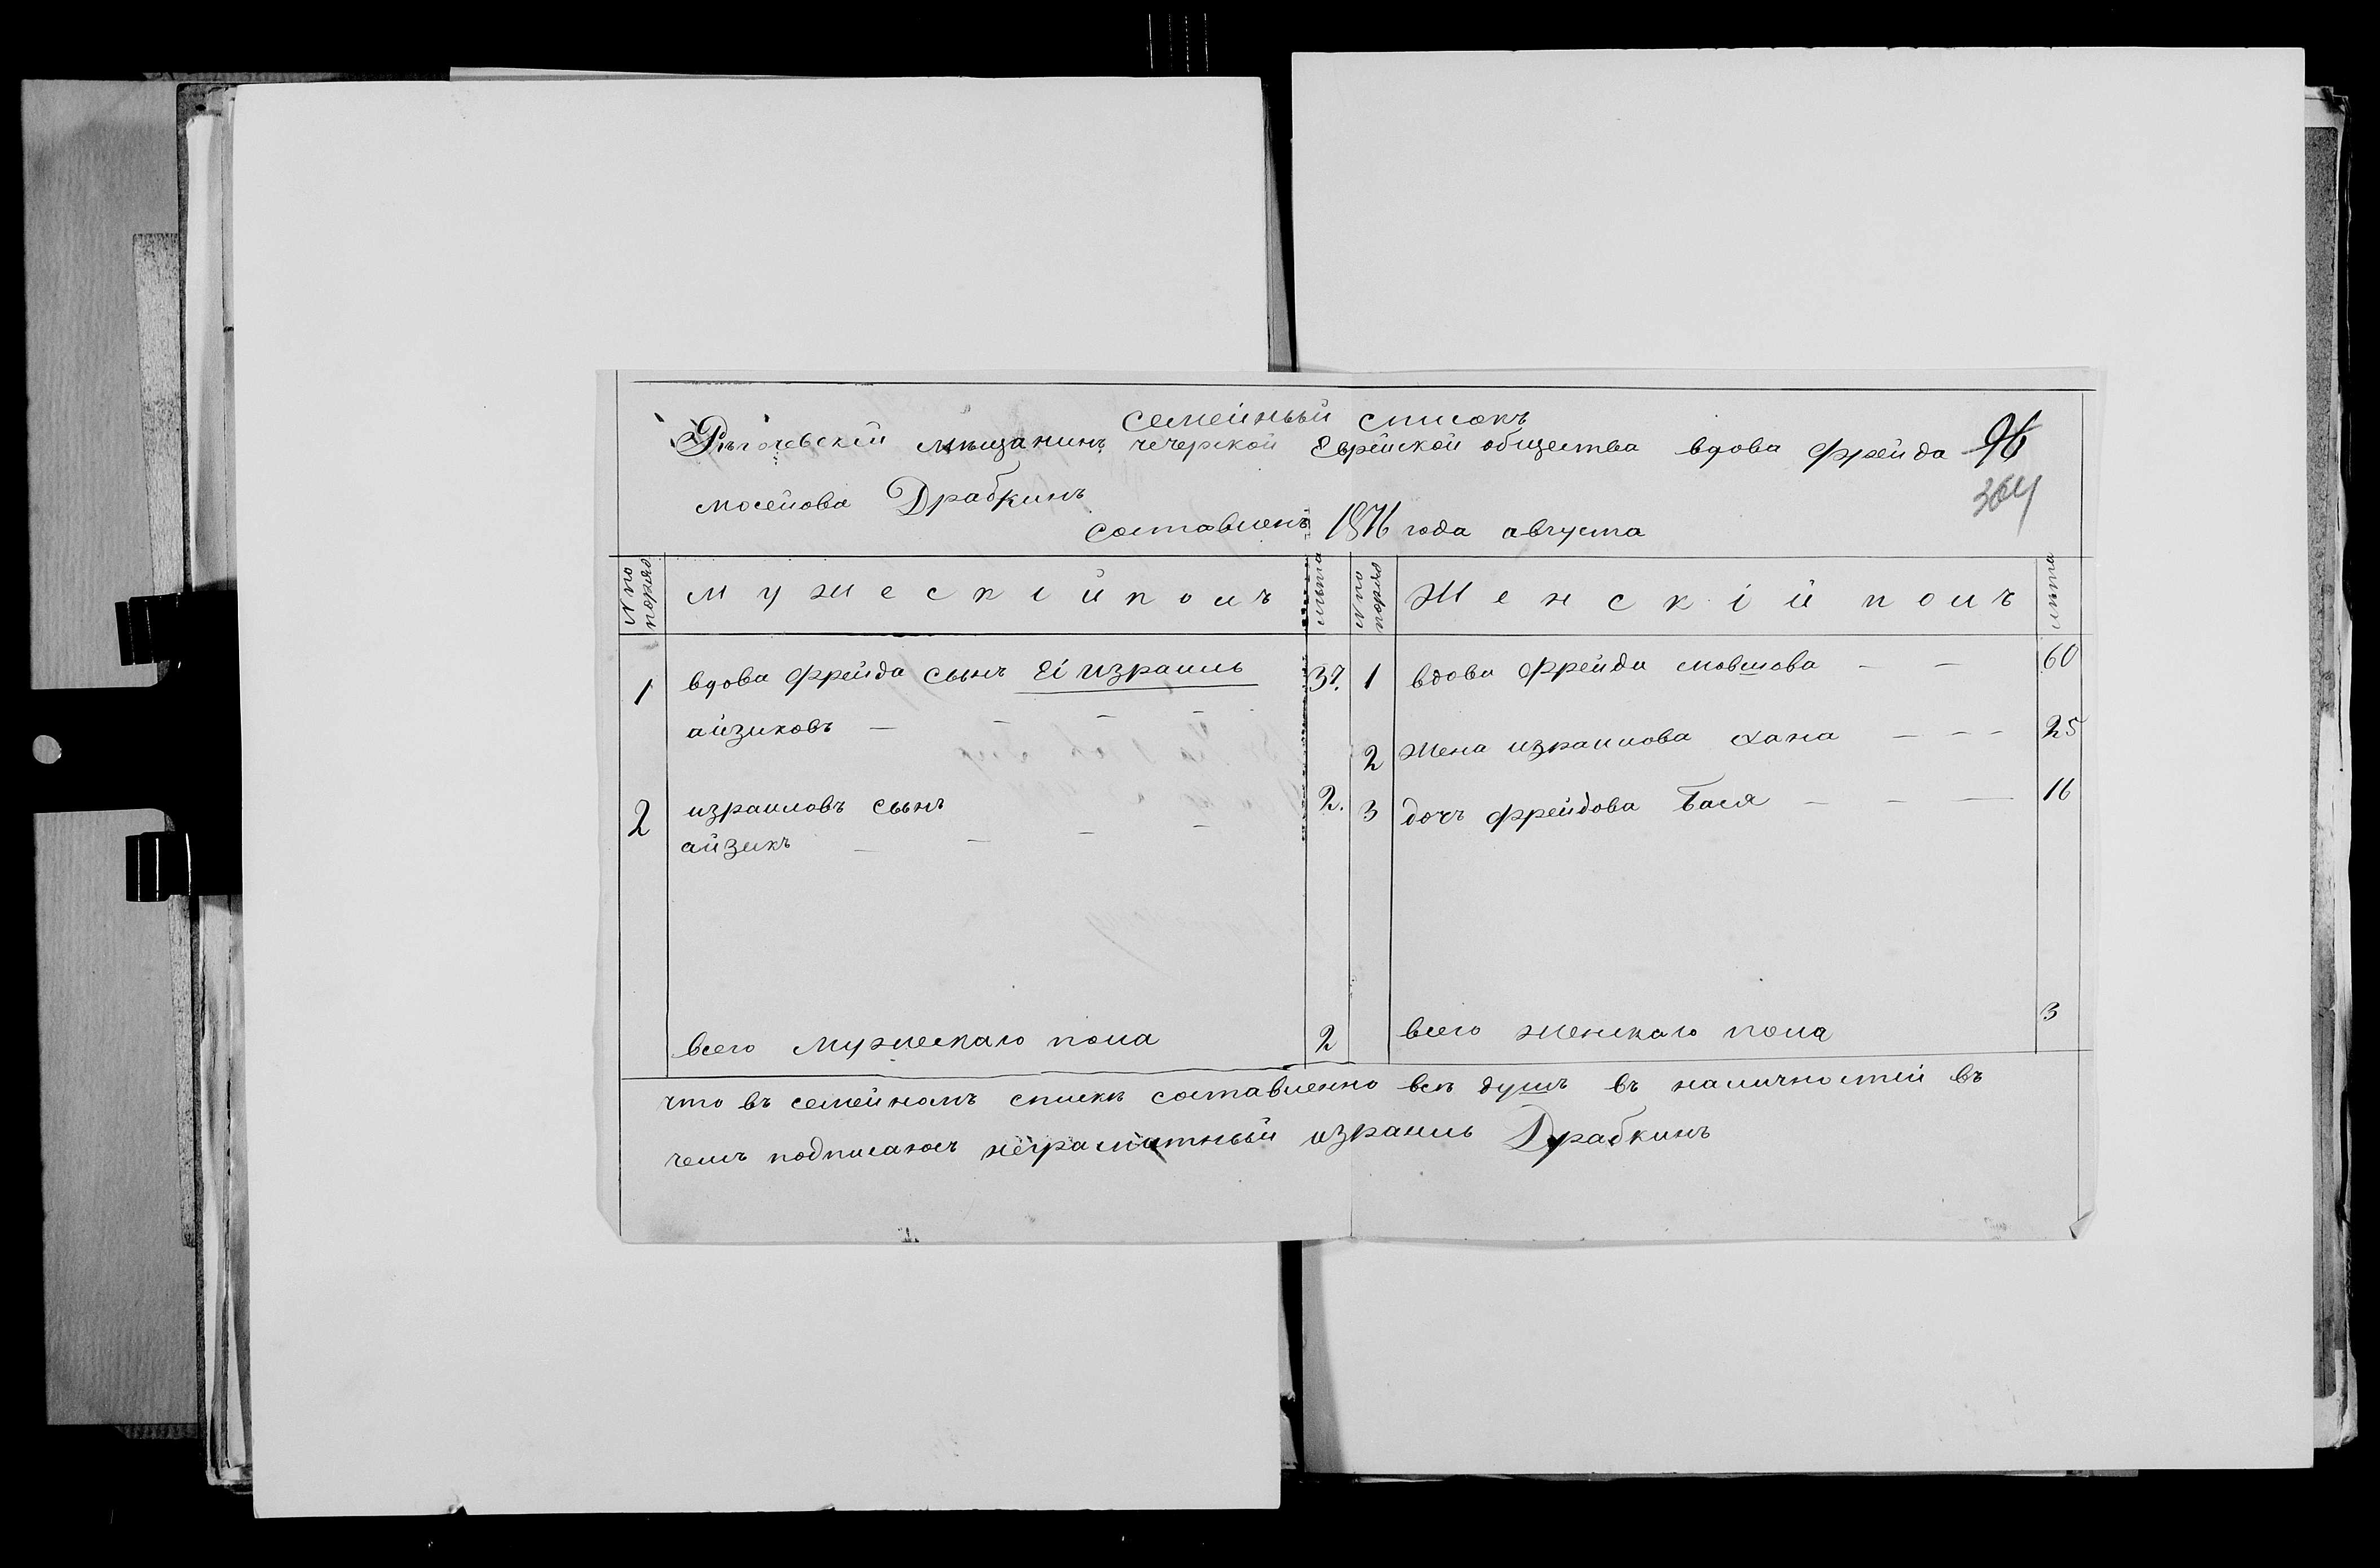 семейный списокъ
Рѣгочевскій мѣщанинъ чечерской Еврейской общества вдова Фрейда 96
мосейова Драбкинъ
364
составленъ 1876 года августа
№ по порядо
мужескій полъ
лѣта
№ по порядо
Женскій полъ
лѣта
1 вдова Фрейда сынъ Еі израиль 37.
айзиковъ — — — —
2 израиловъ сынъ 2.
айзикъ — — — —
всего мужескаго пола 2
1 вдова Фрейда мовшова — — 60
2 Жена израилова хана — — — 25
3 дочъ Фрейдова Бася — — — 16
всего женскаго пола 3
что въ семейномъ спискѣ составленно всѣ душъ въ наличностей въ
чемъ подписаюсъ неграматный израиль Драбкинъ